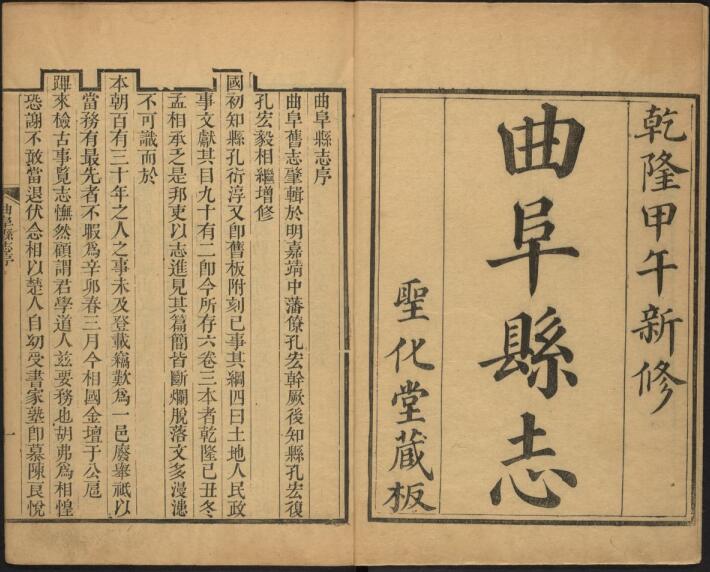 乾隆甲午新修
曲阜縣志
聖化堂藏板
曲阜縣志序
曲阜舊志肇輯於明嘉靖中藩僚孔宏幹厥後知縣孔宏復
孔宏毅相繼增修
國初知縣孔衍淳又卽舊板附刻已事其綱四曰土地人民政
事文獻其目九十有二卽今所存六卷三本者乾隆己丑冬
孟相承之是邦吏以志進見其篇簡皆斷爛脫落文多漫漶
不可識而於
本朝百有三十年之人之事未及登載竊歎爲一邑廢舉祗以
當務有最先者不暇爲辛卯春三月今相國金壇于公扈
蹕來檢古事覧志憮然顧謂君學道人茲要務也胡弗爲相惶
恐謝不敢當退伏念相以楚人自幼受書家塾卽慕陳良悅
曲阜縣志序
一